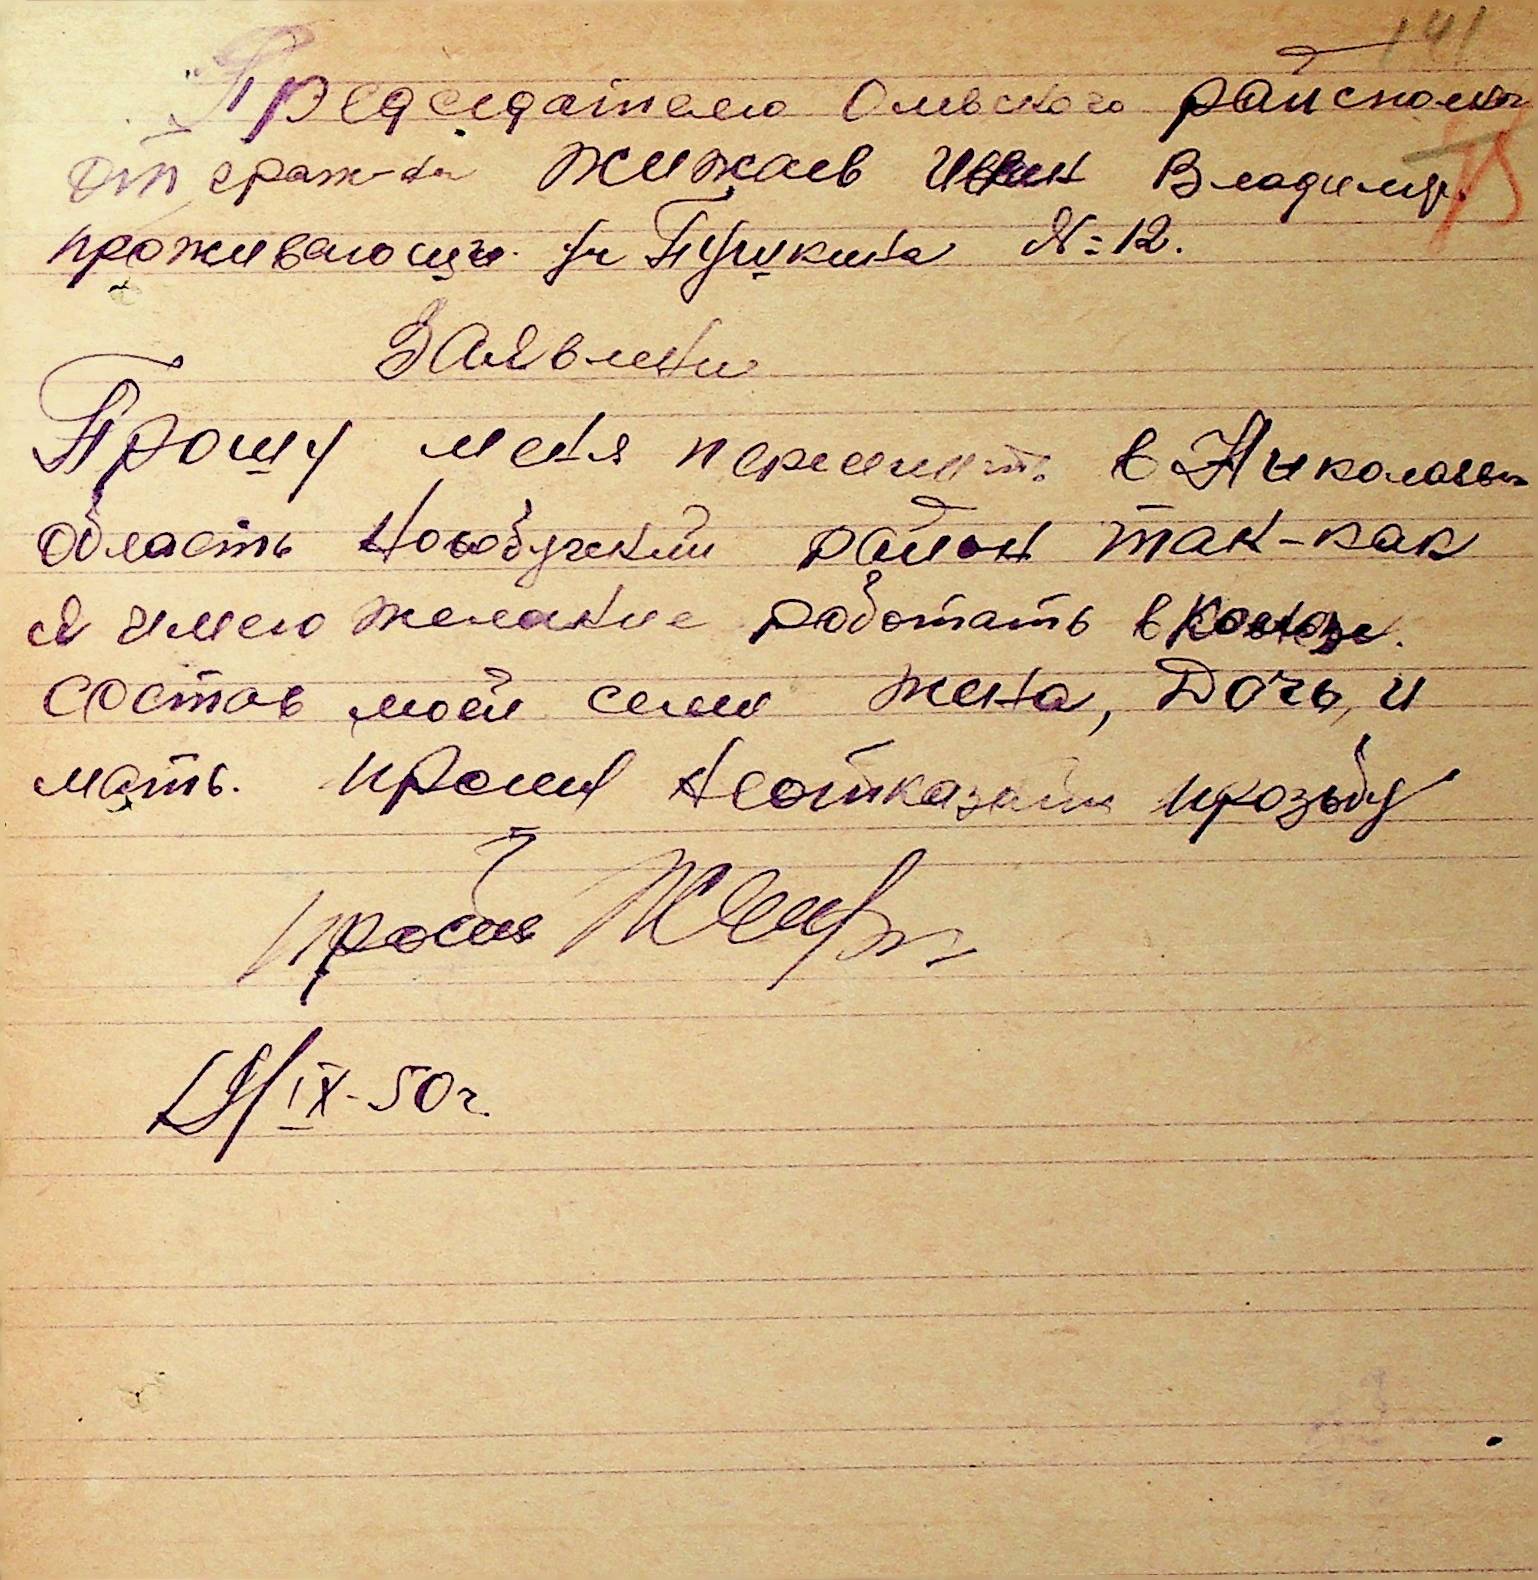 141
Председателю Олевского райсполко
75
от граж-на Жижаев Иван Владимир.
проживающего. ул Пушкина №12.
Заявлени
Прошу меня в Николаевс
область Новобугский район так-как
я имею желание работать в
Состав моей семи жена, Дочь, и
мать. прошу неотказать прозьбу
IX-50г.